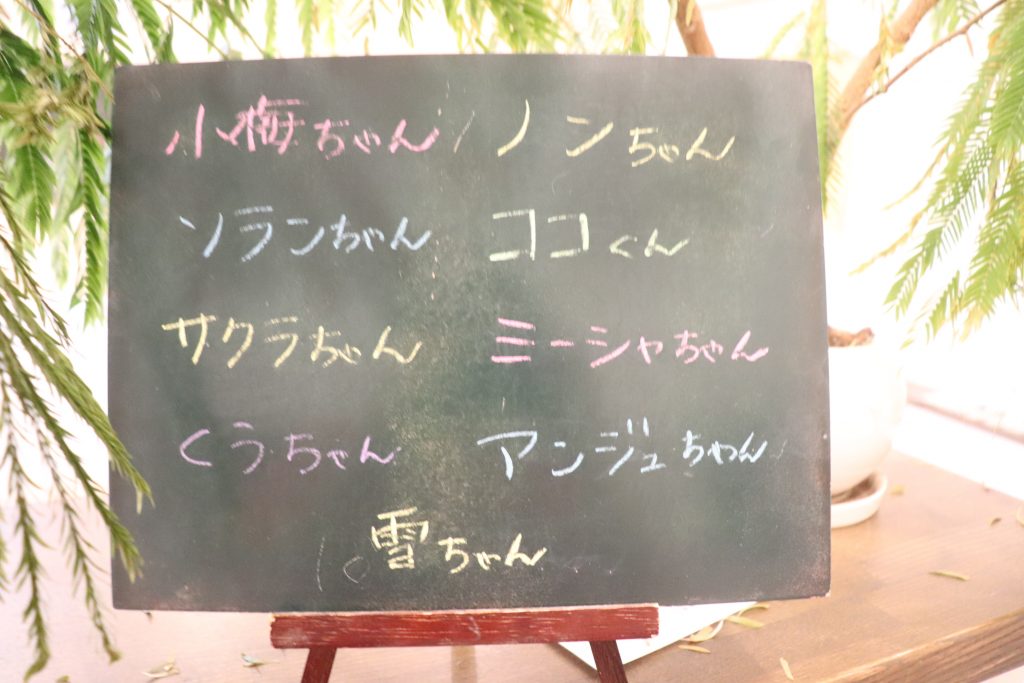 小梅ちゃん ノンちゃん
ソランちゃん ココくん
サクラちゃん ミーシャちゃん
くうちゃん アンジュちゃん
雪ちゃん